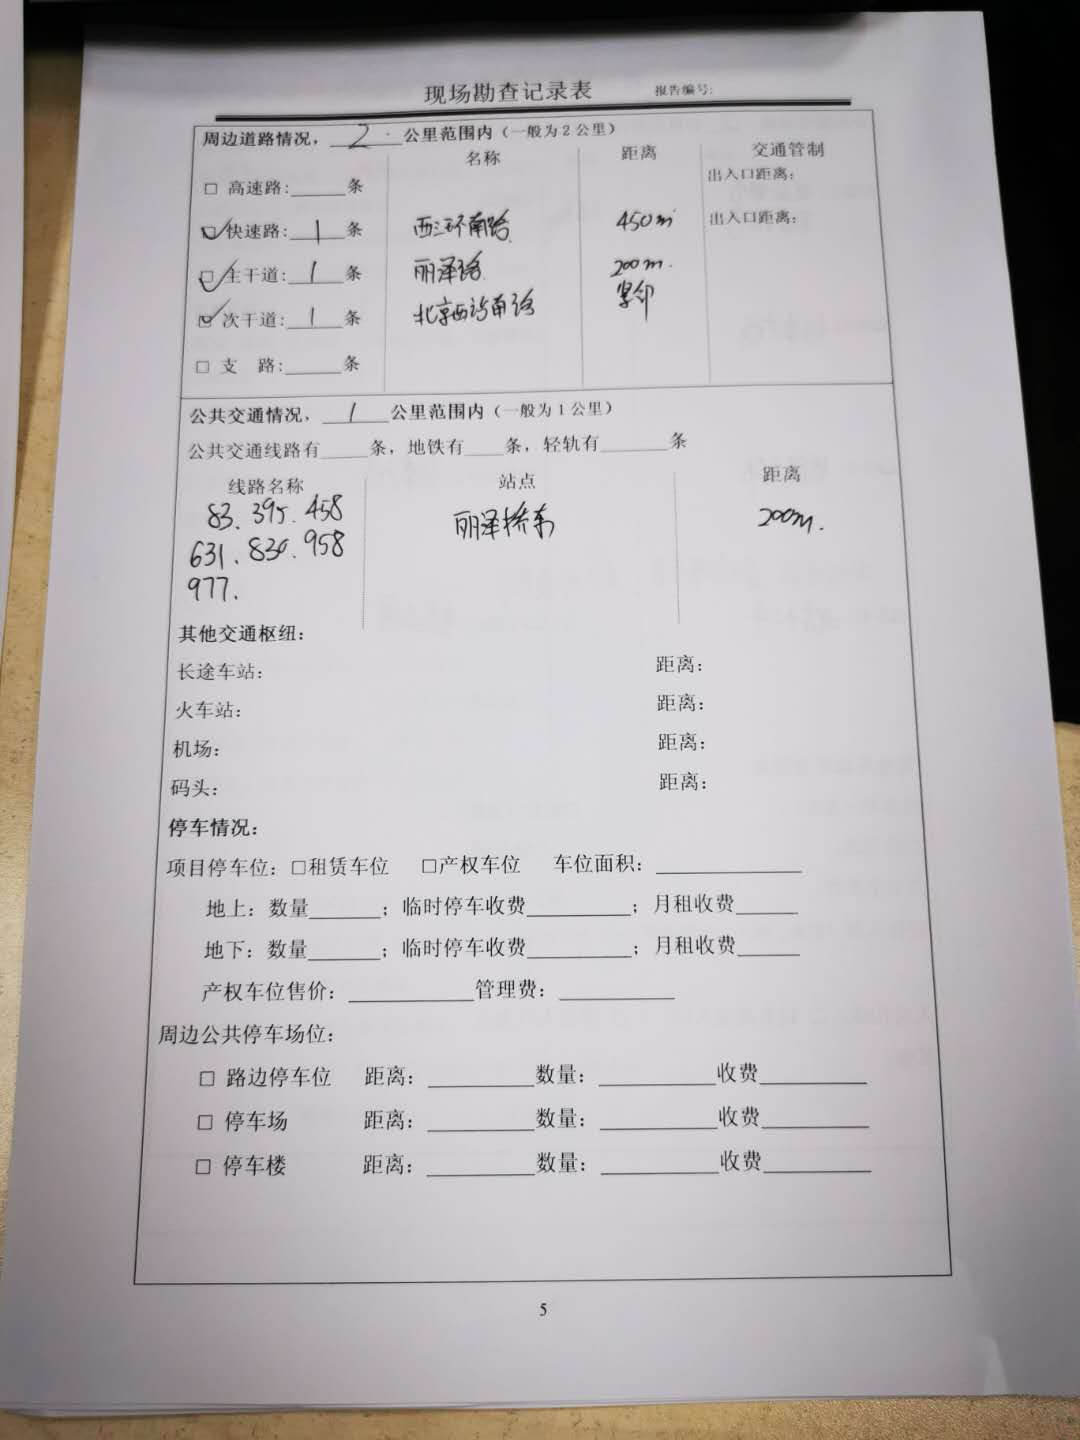 现场勘查记录表 报告编号:
周边道路情况，2公里范围内（一般为2公里）
名称 距离 交通管制
□ 高速路:______条 出入口距离：
☑ 快速路: 1 条 西三环南路 450m 出入口距离：
☑ 主干道: 1 条 丽泽路 200m.
☑ 次干道: 1 条 北京西站南路 紧邻
□ 支 路:______条
公共交通情况，1公里范围内（一般为1公里）
公共交通线路有_____条，地铁有____条，轻轨有_______条
线路名称 站点 距离
83、395、458 丽泽桥东 200m.
631、830、958
977.
其他交通枢纽：
长途车站： 距离：
火车站： 距离：
机场： 距离：
码头： 距离：
停车情况：
项目停车位：□租赁车位 □产权车位 车位面积：______________
地上：数量_______；临时停车收费__________；月租收费______
地下：数量_______；临时停车收费__________；月租收费______
产权车位售价：____________管理费：___________
周边公共停车场位：
□ 路边停车位 距离：__________数量：___________收费__________
□ 停车场 距离：__________数量：___________收费__________
□ 停车楼 距离：__________数量：___________收费__________
5